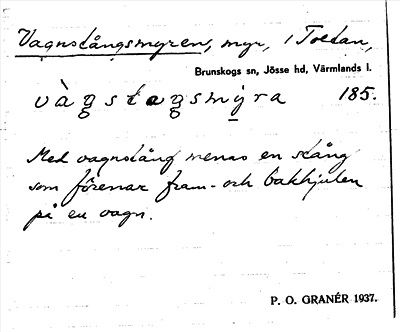 Vagnstångsmyren, myr, i Toetan,
Brunskogs sn, Jösse hd, Värmlands l.
185.
Med vagnstång menas en stång
som förenar fram- och bakhjulen
på en vagn.
P. O. GRANÉR 1937.